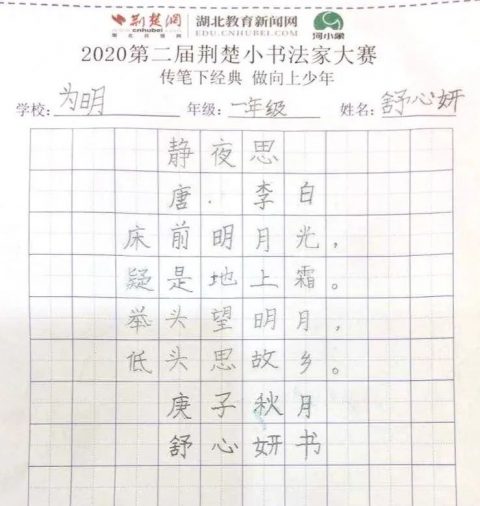 荆楚网 湖北教育新闻网
www.cnhubei.com WWW.CNHUBEI.COM/EDU 河小象
2020第二届荆楚小书法家大赛
传笔下经典 做向上少年
学校:为明 年级:一年级 姓名:舒心妍
静夜思
唐.李白
床前明月光,
疑是地上霜。
举头望明月,
低头思故乡。
庚子秋月
舒心妍书